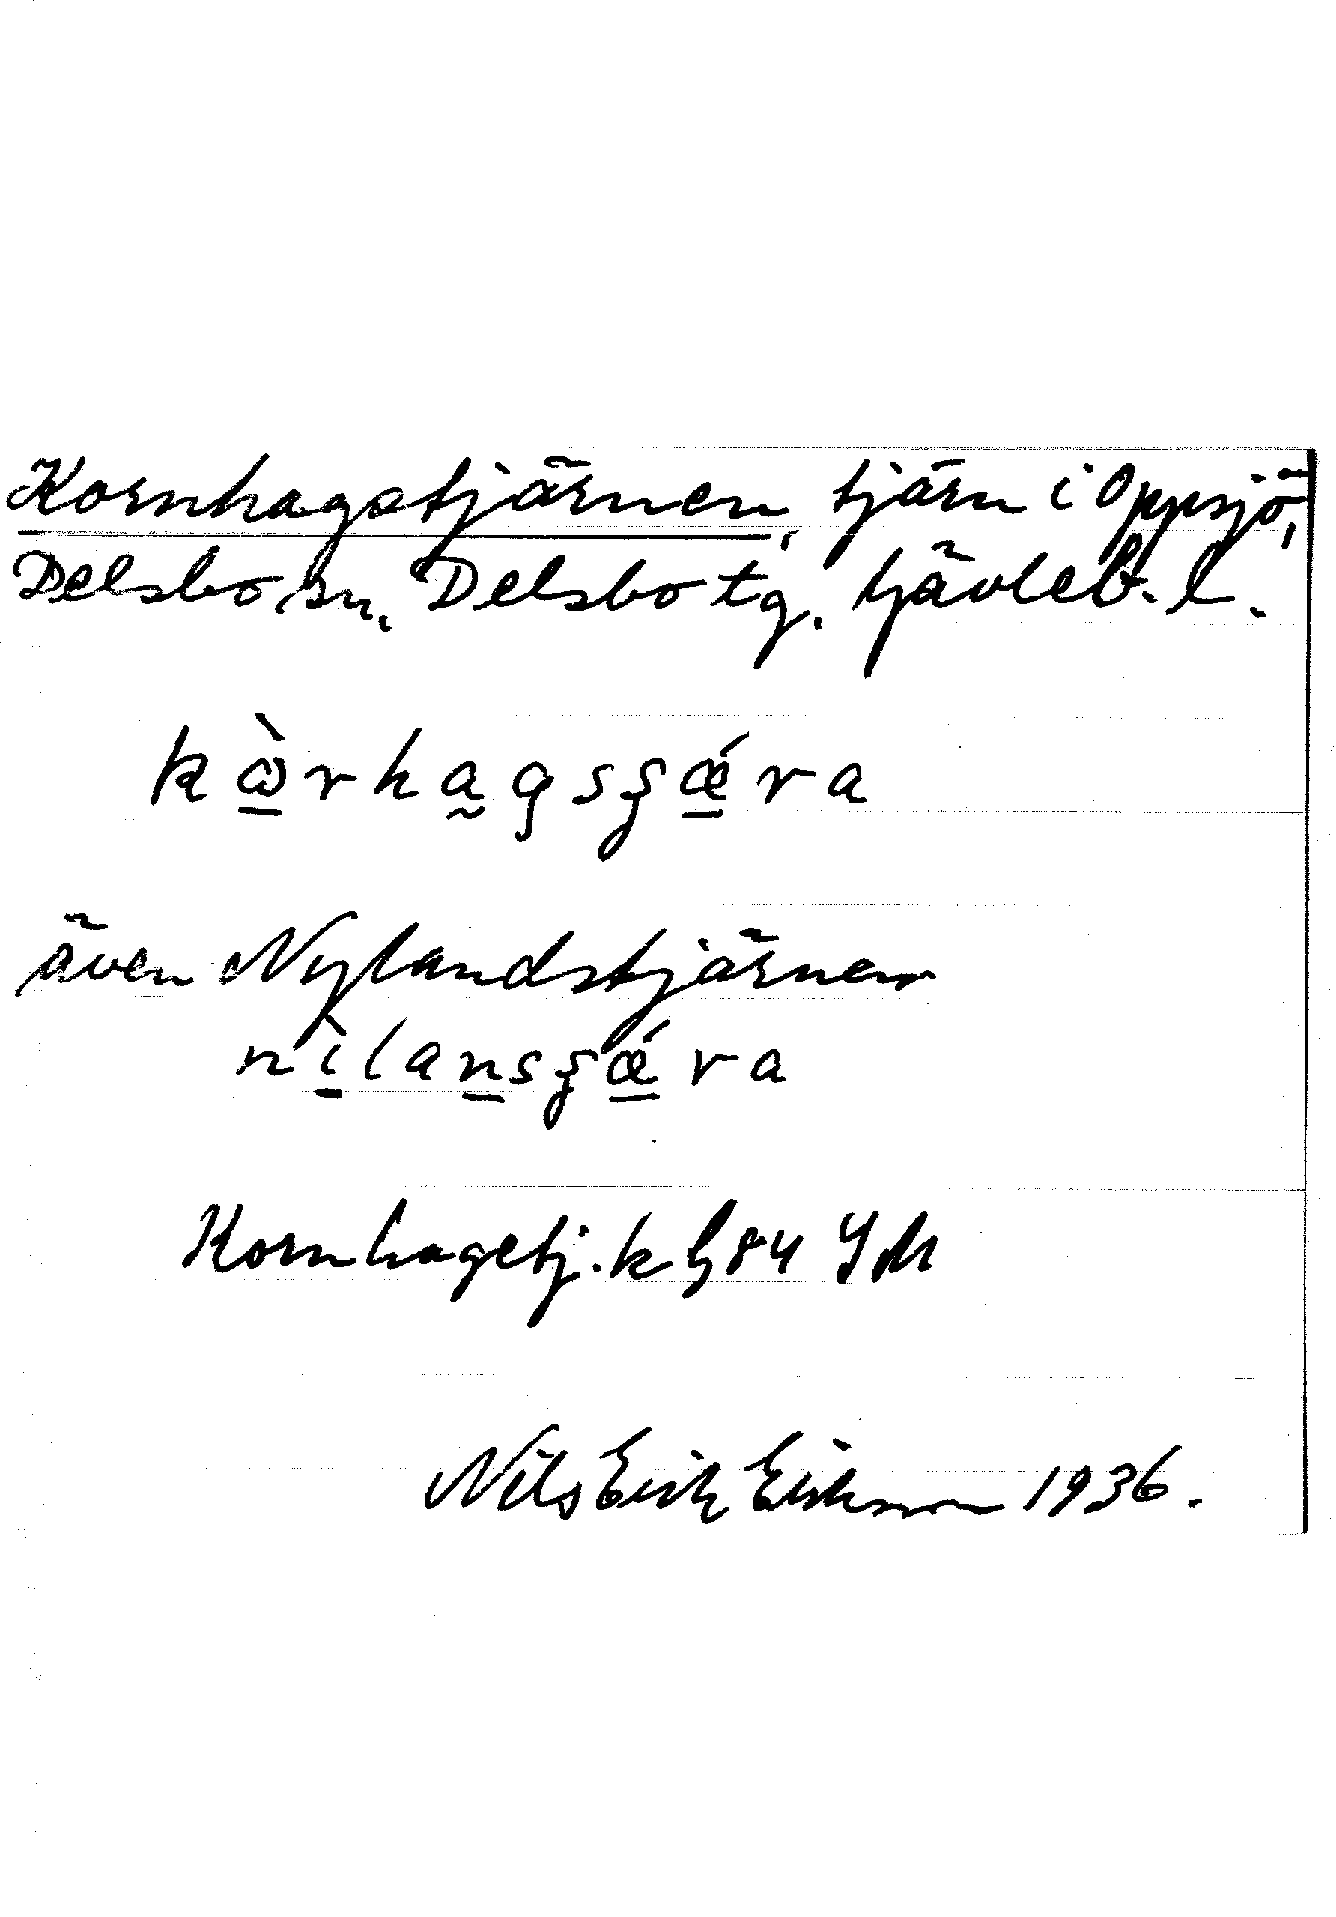 Kornhagstjärnen, tjärn i Oppsjö,
Delsbo sn, Delsbo tg. Gävleb. l.
kὼ̱rha̰gsʂǽ̱ra
även Nylandstjärnen
nì̱laṉsʂǽ̱ra
Kornhagstj. k G84
Nils Erik Erikson 1936.